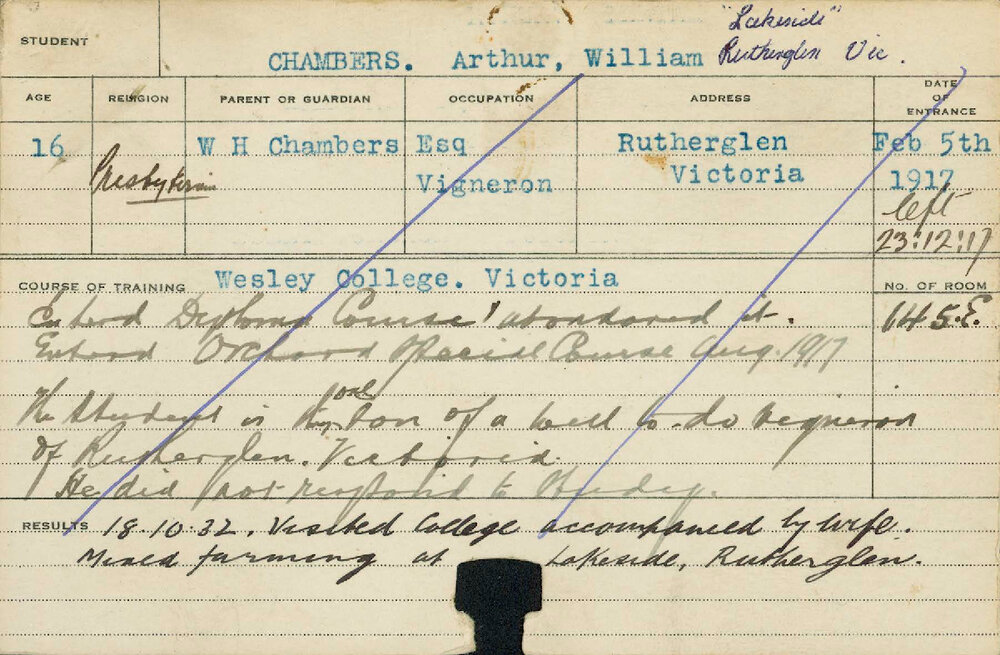 "Lakeside"
STUDENT CHAMBERS. Arthur, William Rutherglen Vic.
AGE RELIGION PARENT OR GUARDIAN OCCUPATION ADDRESS DATE OF ENTRANCE
16 W H Chambers Esq Rutherglen Feb 5th
Presbyterian Vigneron Victoria 1917
left
23:12:17
COURSE OF TRAINING Wesley College. Victoria No. OF ROOM
Enterd Diploma Course' abandored it. 145.E.
Enterd Orchard Special Course Aug. 1917
only
The Student is the son of a well to-do vigneron
of Rutherglen. Victoria.
He did not respond to Study.
RESULTS 18.10.32. Visited College accompanied by wife.
Mixed farming at Lakeside, Rutherglen.